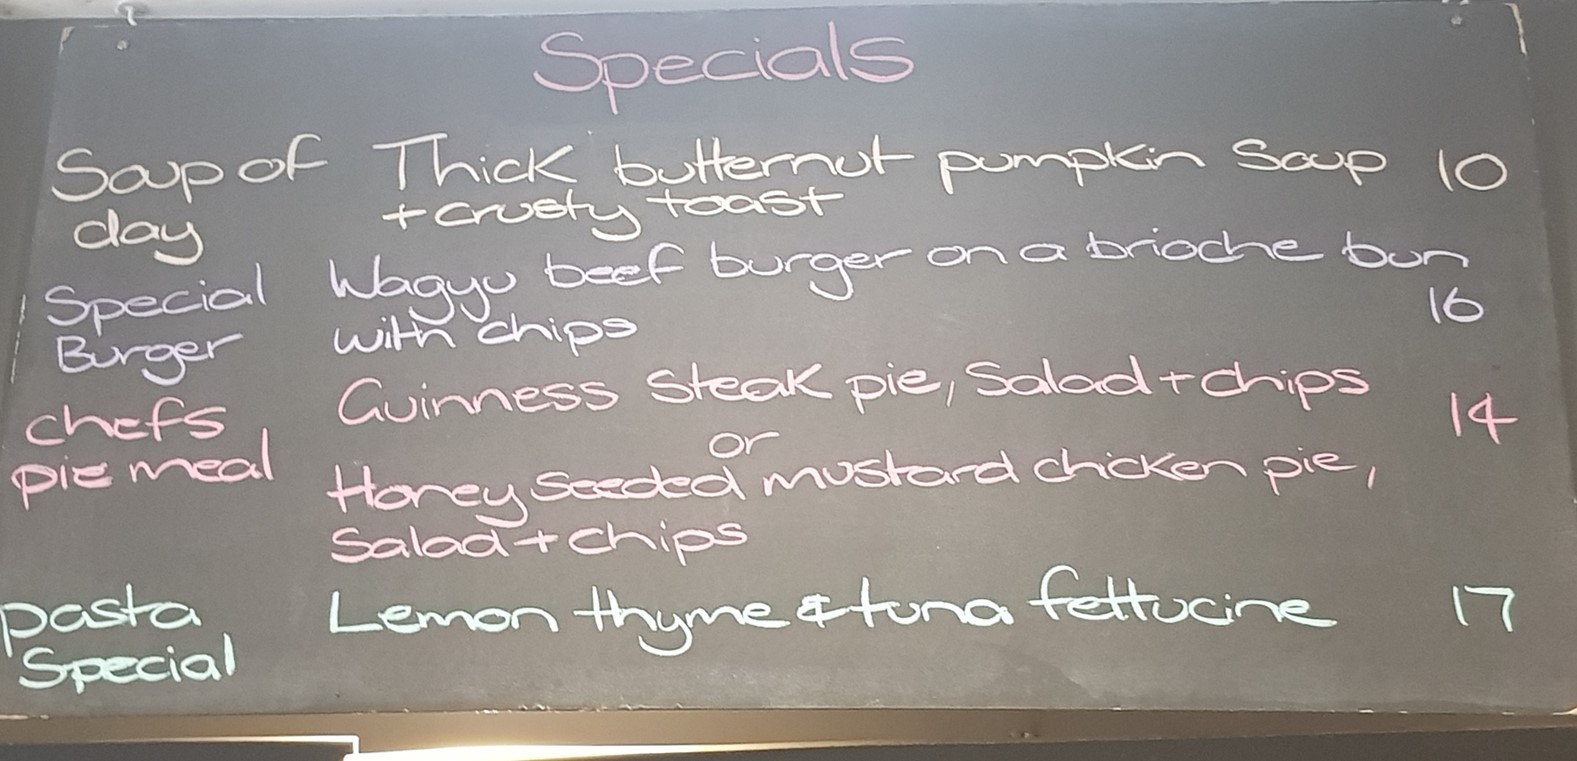 Specials
Soup of Thick butternut pumpkin Soup 10
day + crusty toast
Special Wagyu beef burger on a brioche bun
Burger with chips 16
chefs Guinness Steak pie, Salad + chips 14
or
pie meal Honey Seeded mustard chicken pie,
Salad + chips
pasta Lemon thyme & tuna fettucine 17
Special